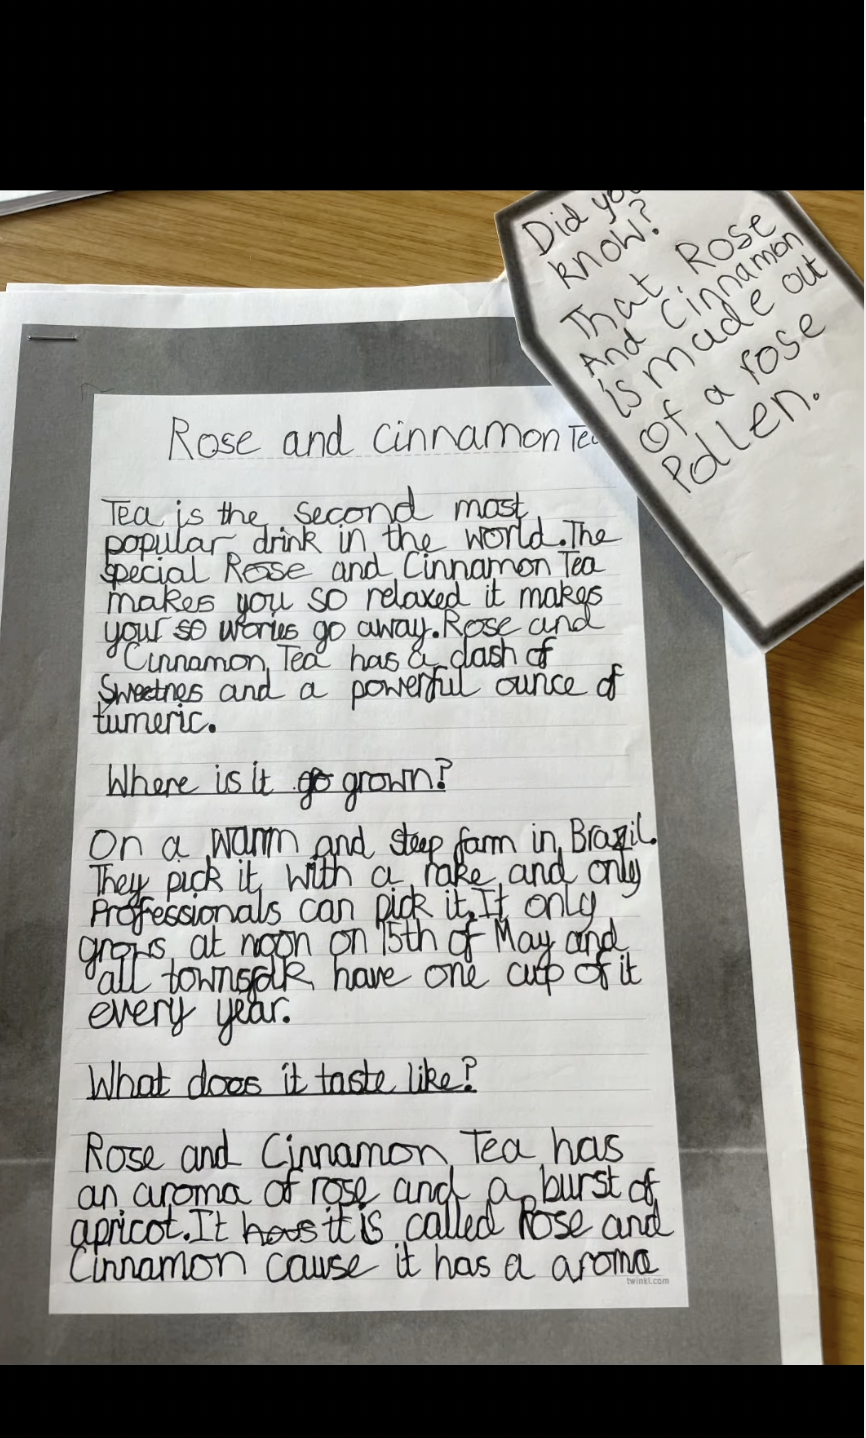 Did you
know?
That Rose
And Cinnamon
is made out
of a rose
Pollen.
Rose and Cinnamon Tea
Tea is the second most
popular drink in the world.The
special Rose and Cinnamon Tea
makes you so relaxed it makes
your so wories go away.Rose and
Cinnamon Tea has a dash of
Sweetnes and a powerful ounce of
tumeric.
Where is it go grown?
On a warm and steep farm in Brazil.
They pick it with a rake and only
Professionals can pick it.It only
grows at noon on 15th of May and
all townsfolk have one cup of it
every year.
What does it taste like?
Rose and Cinnamon Tea has
an aroma of rose and a burst of
apricot.It has it is called Rose and
Cinnamon cause it has a aroma
twinkl.com